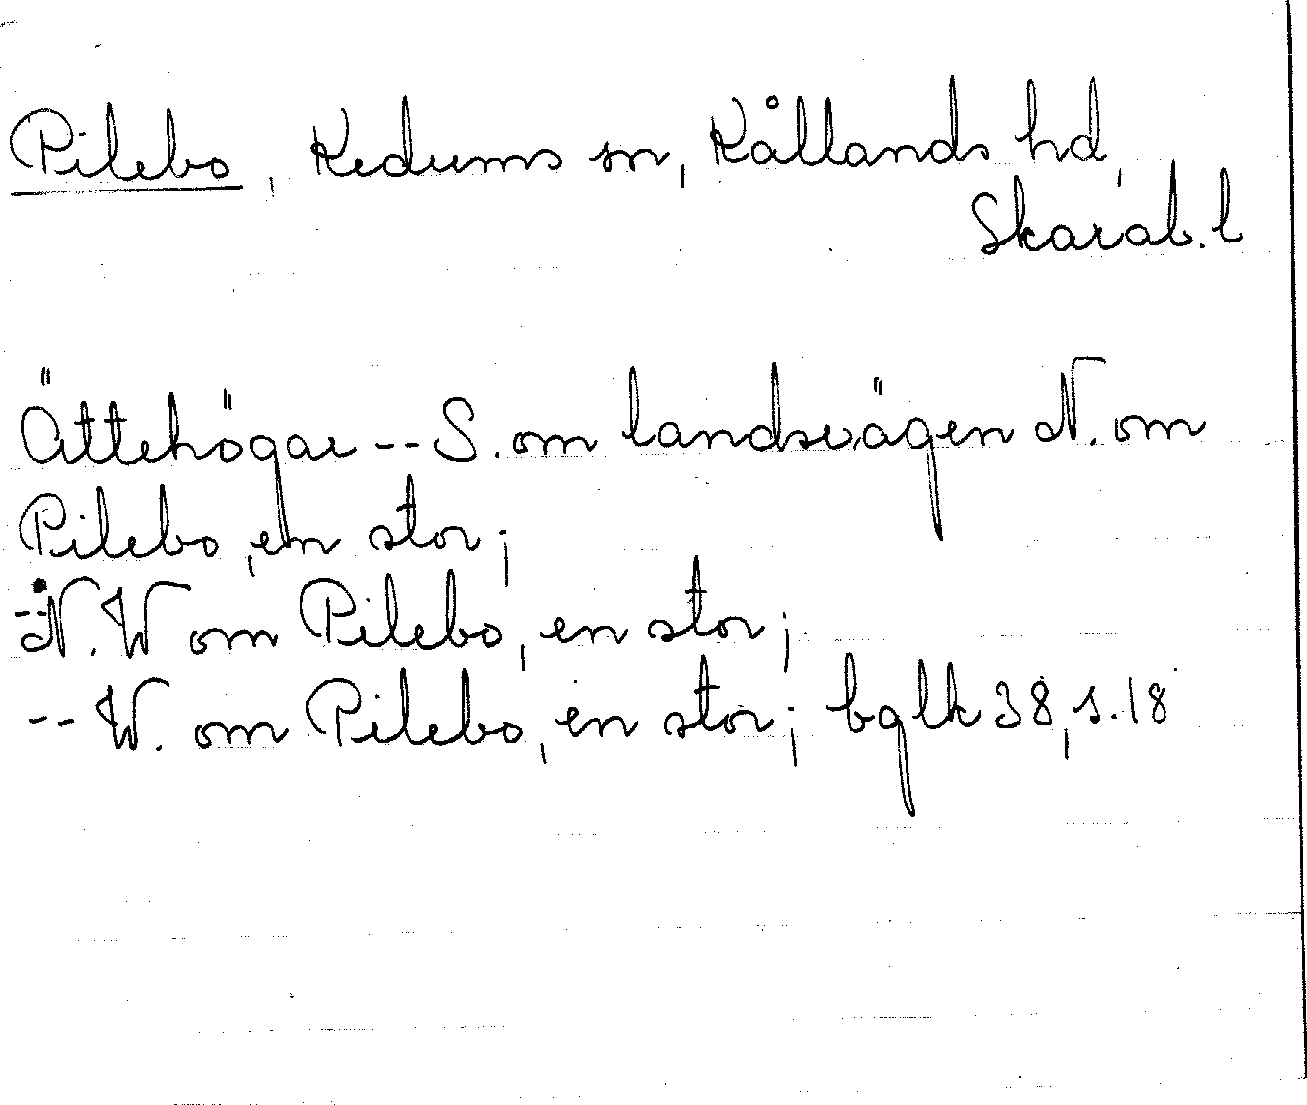 Pilebo, Kedums sn, Kållands hd,
Skarab. l
Ättehögar -- S. om landsvägen N. om
Pilebo, en stor;
-- N. W om Pilebo, en stor;
-- W. om Pilebo, en stor; bglk 38, s. 18